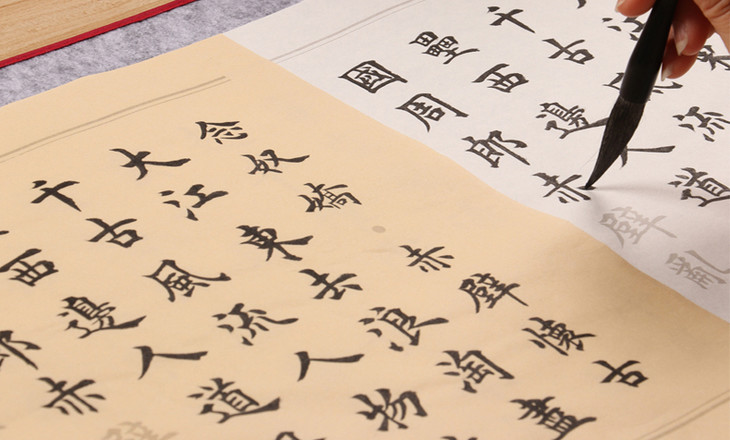 念奴嬌赤壁懷古
大江東去浪淘盡
千古風流人物
西邊人道
郎赤壁
千古風流
壘西邊人道
國周郎赤壁亂